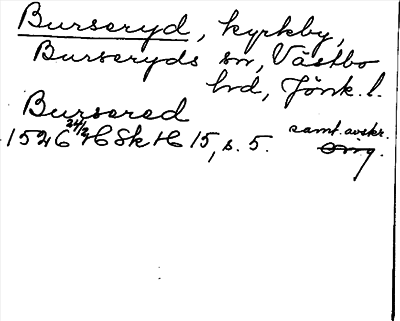 Burseryd, kyrkby,
Burseryds sn, Västbo
hd, Jönk. l.
Bursered
1526 24/2 HSkH 15, s. 5. samt. avskr.
orig.